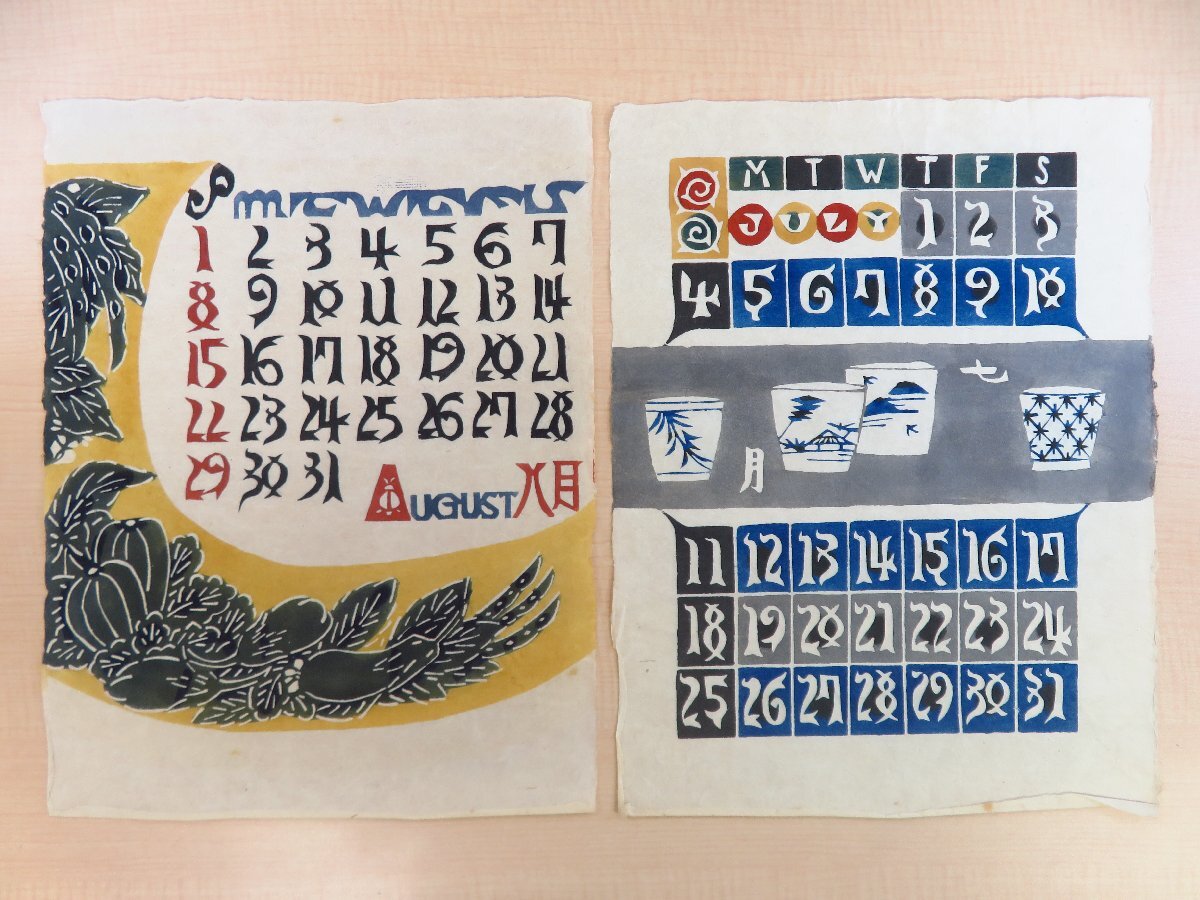 S M T W T F S
1 2 3 4 5 6 7
8 9 10 11 12 13 14
15 16 17 18 19 20 21
22 23 24 25 26 27 28
29 30 31
AUGUST 八月
S M T W T F S
JULY 1 2 3
4 5 6 7 8 9 10
七
月
11 12 13 14 15 16 17
18 19 20 21 22 23 24
25 26 27 28 29 30 31